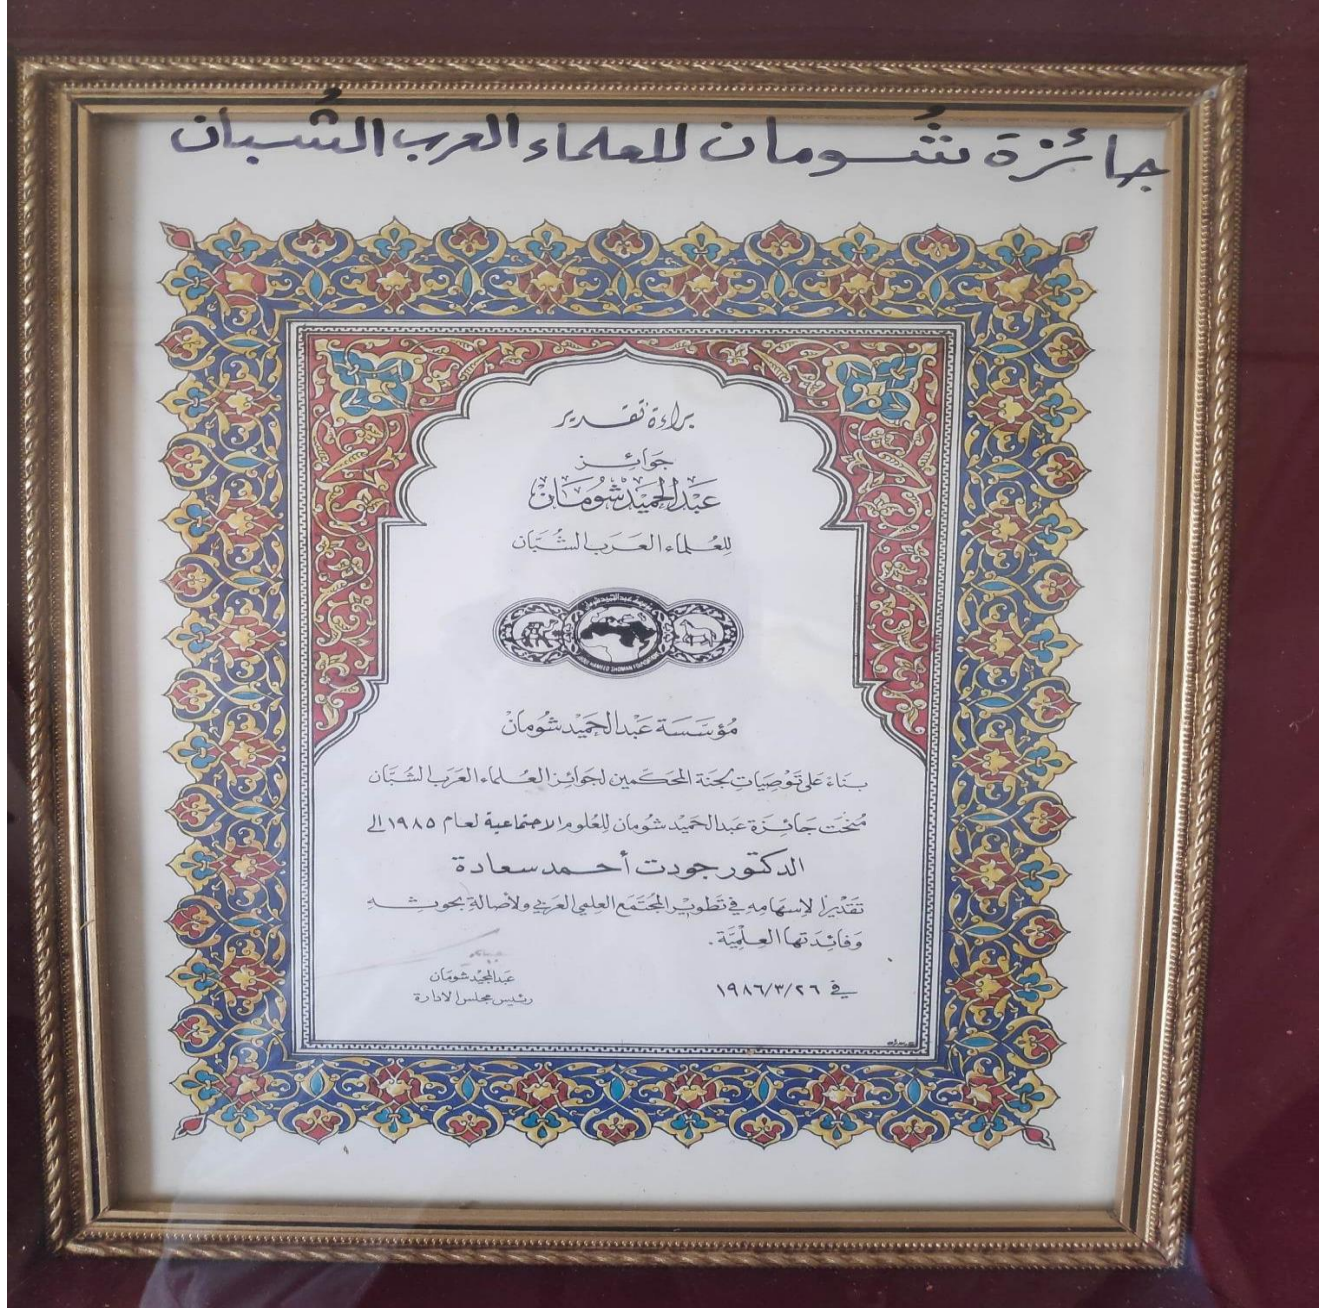 جائزة شُومان للعلماء العرب الشُبان
براءة تقدير
جَوائز
عَبْد الحَميْد شُومَان
للعُلماء العَرَب الشُبَّان
مؤسسة عبد الحميد شومان
ABDUL HAMEED SHOMAN FOUNDATION
مُؤسَّسَة عَبْد الحَميْد شُومَان
بناءً عَلى تَوْصِيَات لجنَة المحكَمين لجَوائز العُلماء العَرَب الشُبَّان
مُنحَت جَائزَة عَبد الحَميْد شُومَان للعُلوم الاجتماعية لعَام ١٩٨٥ الى
الدكتور جودت أحمد سعادة
تَقديْراً لإسهَامِه في تَطويْر المجتَمَع العِلمي العَرَبي ولأصَالة بحوثِه
وَفائِدَتها العِلْميَّة.
في ١٩٨٦/٣/٢٦
عَبد المجيْد شُومَان
رئيس مجلس الادارة